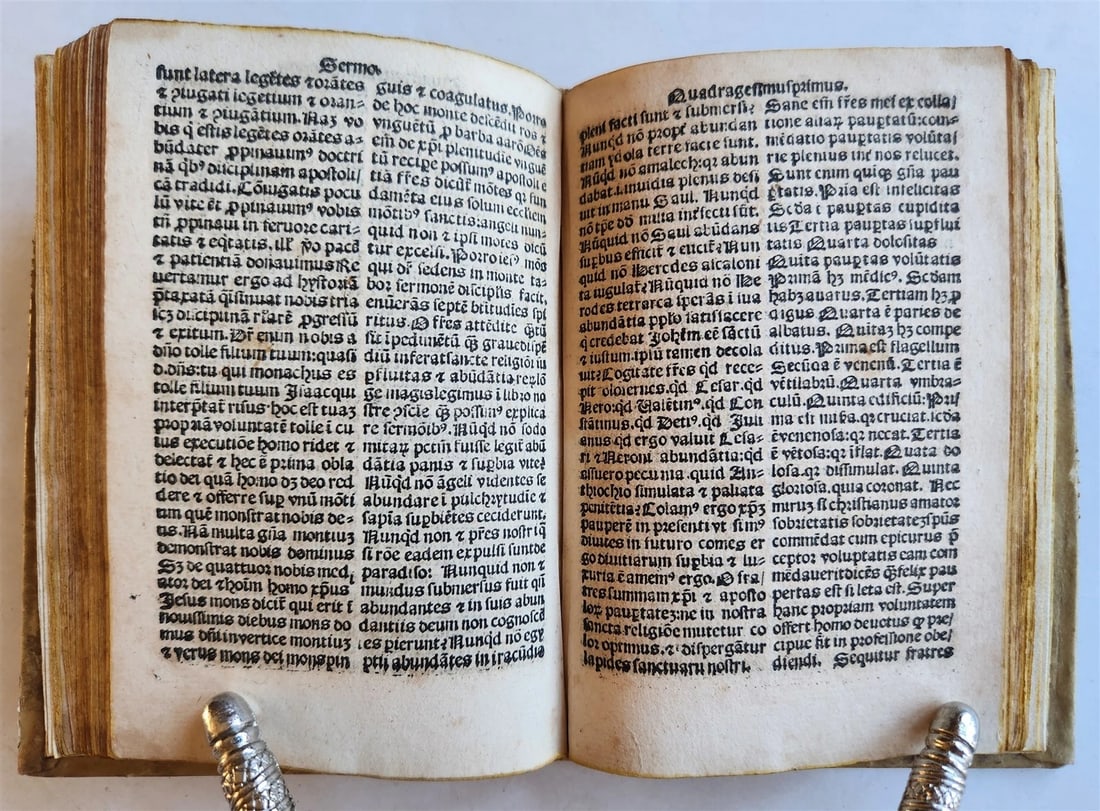 Sermo.
sunt latera legẽtes ⁊ orãtes
⁊ ꝯiugati legentium ⁊ oran-
tium ⁊ ꝯiugãtium. Naʒ vo
bis q̃ estis legẽtes orãtes a-
bũdãter ꝓpinauimꝰ doctri
nã qͥbꝰ disciplinam apostoli/
cã tradidi. Cõiugatis pocu
lũ vite ẽt ꝓpinauimꝰ vobis
tñ ꝓpinaui in feruore cari-
tatis ⁊ eq̃tatis. ill' ỹo pacẽ
⁊ patientiã donauimus Re
uertamur ergo ad hystoriã
p̃taxatã q̃ insinuat nobis tria
scʒ disciplinã ꝓgressũ
⁊ exitum. Dr̃ enim nobis a
dño tolle filium tuum: quasi
d. dñs: tu qui monachus es
tolle filium tuum Isaac qui
interp̃tat̃ risus. hoc est tuaʒ
propriã voluntatẽ tolle ĩ cu
ius executiõe homo ridet ⁊
delectat̃ ⁊ hec ẽ prima obla
tio dei quã homo dʒ deo red
dere ⁊ offerre sup̃ vnũ mõti
um quẽ monstrat nobis de-
us. Nã multa gña montiuʒ
demonstrat nobis dominus
Sʒ de quattuor nobis medi
ator dei ⁊ hoĩm homo xp̃us
Jesus mons dicit̃ qui erit ĩ
nouissimis diebus mons do
mus dñi in vertice montiuʒ
⁊ verus mons dei mons pin
guis ⁊ coagulatus. Porro
de hoc monte descẽdit ros ⁊
vnguẽtũ ꝓ barba aarõ
em̃ de xp̃i plenitudie vnguẽ
tũ recipe possumꝰ apostoli ⁊
tiã fr̃es dicũt̃ mõtes q̃ sun
damẽta eius solum eccliem
mõtibꝰ sanctis: angeli nun-
quid non ⁊ ip̃i mõtes dicũ
tur excelsi. Porro iesꝰ mõs
qui dr̃ sedens in monte ta-
bor sermonẽ disciplis facit,
enũerãs septẽ btĩtudies spĩ
ritus. O fr̃es attẽdite q̃tũ
sit ĩpedimẽtũ q̃ graue dispẽ
diũ inferat sancte religiõi
pfluitas ⁊ abũdãtia replõ
ge magis legimus ĩ libro no
stre ꝯscie q̃ possumꝰ explica
re sermõibꝰ. Nũqd nõ sodo
mitaꝝ petm̃ fuisse legit̃ abũ
dãtia panis ⁊ sup̃bia vite?
Nũqd nõ ãgeli videntes se
abundare ĩ pulchrytudie ⁊
sapĩa sup̃biẽtes ceciderunt.
Nunqd non ⁊ p̃res nostri q̃
si rõe eadem expulsi sunt de
paradiso: Nunquid non ⁊
mundus submersus fuit qñ
abundantes ⁊ in suis abun
dantiis deum non cognosce
tes perierunt? Nunqd nõ egy
ptii abundãtes in iracũdia
Quadragesimusprimus.
pleni facti sunt ⁊ submersi?
Nũqd nõ propt̃ abundan
tiam ydola terre facte sunt.
Nũqd nõ amalech: qꝛ abun
dabat. i. inuidia plenus desi
uit in manu Saul. Nunqd
nõ tp̃e dd̃ multa infecti sũt.
Nũquid nõ Saul abũdãns
sup̃bus efficit̃ ⁊ encit̃? Nun
quid nõ Herodes ascaloni
ta iugulat̃? Nũquid nõ He
rodes tetrarca sperãs ĩ sua
abundãtia pplo satisfacere
q̃ credebat Johẽm eẽ sctũ
⁊ iustum. ip̃m tamen decola
uit? Cogitate fr̃es qd rece-
pit oloiernes. qd Cesar. qd
Nero: qd Valẽtinꝰ. qd Con
stãtinus. qd Detiꝰ. qd Juli
anus. qd ergo valuit Cesa-
ri ⁊ Neroni abundãtia: qd
assuero pecunia. quid An-
thiochio simulata ⁊ paliata
penitẽtia? Colamꝰ ergo xp̃ʒ
pauperẽ in presenti vt simꝰ
diuites in futuro comes er
go diuitiarum sup̃bia ⁊ lu-
xuria ẽ amemꝰ ergo. O fra/
tres summam xp̃i ⁊ aposto
loꝝ paup̃tatẽ: ne in nostra
sancta religiõe mutetur co
lor optimus. ⁊ dispergãtur
lapides sanctuarii nostri.
Sane em̃ fr̃es mei ex colla/
tione aliaꝝ paup̃tatũ: com-
mẽdatio paup̃tatis volũtai
rie plenius in nos relucet.
Sunt enim quiqʒ gña pau
p̃tatis. Pria est infelicitas
Scda ĩ paup̃tas cupidita
tis Tertia paup̃tas sufusi
tatis Quarta dolositas
Quita paup̃tas volũtatis
Primã hʒ mẽdicꝰ. Scdam
habʒ auarus. Tertiam hʒ ꝓ
digus Quarta ẽ paries de
albatus. Quitaʒ hʒ compe
ditus. Prima est flagellum
Secũda ẽ venenũ. Tertia ẽ
vẽtilabrũ. Quarta vmbra-
culũ. Quinta edificiũ: Pri/
ma est mĩra. qꝛ cruciat. scda
ẽ venenosa: qꝛ necat. Tertia
ẽ vẽtosa: qꝛ iflat. Quata do
losa. qꝛ dissimulat. Quinta
gloriosa. quia coronat. Nec
miruʒ si christianus amator
sobrietatis sobrietatẽ
commẽdat cum epicurus p̃
ceptor voluptatis eam com
mẽdauerit dicẽs q̃ felix pau
pertas est si leta est. Super
hanc propriam voluntatem
offert homo deuotus q̃ pre/
cipue fit in professione obe/
diendi. Sequitur fratres